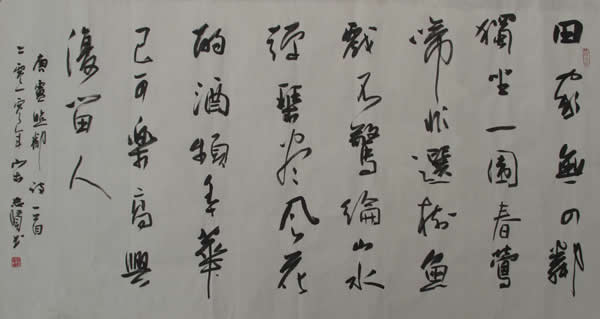 田家無四鄰
獨坐一園春鶯
啼非選樹魚
戲不驚綸山水
彈琴盡風花
酌酒頻年華
已可樂高興
復留人
唐盧照鄰詩一首
二零一零年 書